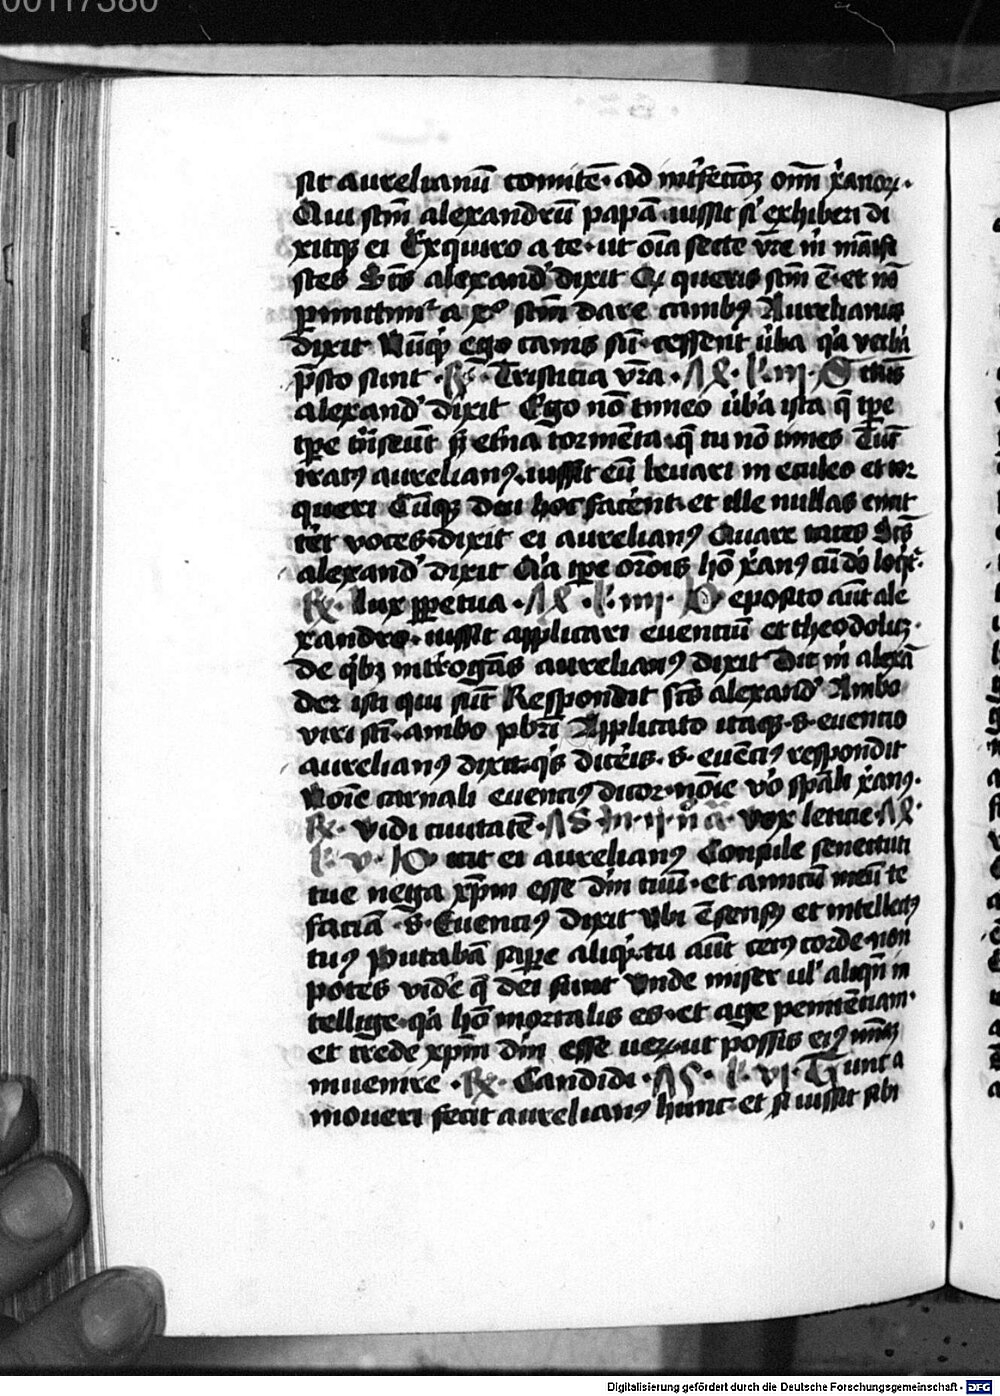 00117380
sit aurelianū comitē · ad int̄fectōꝫ om̄ x̄anoꝝ ·
Qui sc̄m alexandrū papā · iussit s̄ exhiberi di
xitqꝫ ei Exquiro a te · ut oīa secte vr̄e m̄ māife
stes Sc̄s alexand' dixit Q̄ queris sc̄m ē · et nō
ꝑmittim̄ a xº sc̄m dare canibꝰ Aurelianus
dixit Nūqͥd ego canis sū · cessent ūba qͣ verb̄a
p̄sto sunt · R̄ · Tristicia vr̄a · A℣ · l · iij · S ctus
alexand' dixit Ego nō timeo ūba ista q̄ tꝑe
tꝑe t̄nseūt s̄ et̄na tormēta · q̄ tu nō times Tūc
iratꝰ aurelianꝰ · iussit eū leuari in eculeo et tor
queri Cūqꝫ diu hoc facent · et ille nullas emit
tēt voces · dixit ei aurelianꝰ Quare taces Sc̄s
alexand' dixit Qͣ tꝑe orōis hō x̄anꝰ cū dō loqͥt̄ ·
R̄ · Lux ꝑpetua · A℣ · l · iiij · D eposito aūt ale
xandro · iussit applicari euentiū et theodoluꝫ ·
de qͥbꝫ int̄rogās aurelianꝰ dixit Dic m̄ alexā
der isti qui sūt Respondit sc̄s alexand' Ambo
viri sc̄i · ambo pbr̄i Applicato itaqꝫ · s · euentio
aurelianꝰ dixit · qͥs dicēis · s · euēciꝰ respondit
Noīe carnali euenciꝰ dicor · nōie vō sp̄ali x̄anꝰ ·
R̄ · Vidi ciuitatē · vox leticie · A℣ ·
l · v · D ixit ei aurelianꝰ Consule senectuti
tue nega xp̄m esse dm̄ tuū · et amicū meū te
faciā · S · Euenciꝰ dixit Vbi ē sensꝰ et intellectꝰ
tuꝰ Putabā saꝑe aliqͥd · tu aūt cecꝰ corde · non
potes vidē q̄ dei sunt Vnde miser ul' aliqn̄ in
tellige · qͣ hō mortalis es · et age penitēciam ·
et crede xp̄m dm̄ esse ueꝝ · ut possis eiꝰ mīaꝫ
inuenire · R̄ · Candidi · l · vj · T unc a
moueri fecit aurelianꝰ hunc · et s̄ iussit sibi
Digitalisierung gefördert durch die Deutsche Forschungsgemeinschaft - DFG